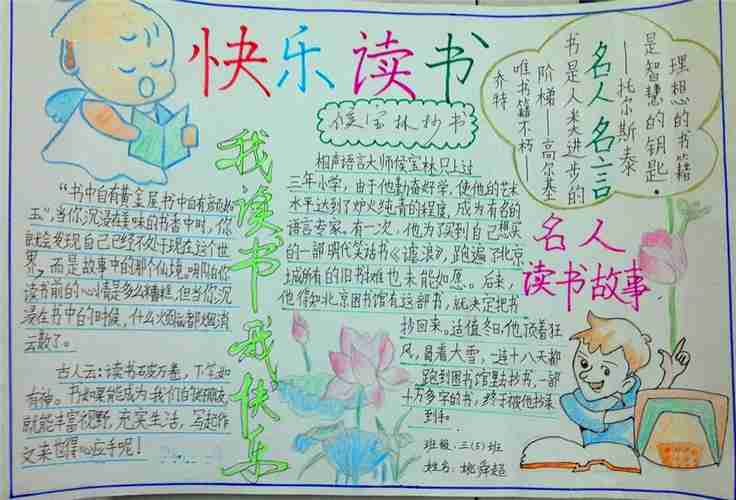 快乐读书
理想的书籍
是智慧的钥匙.
——托尔斯泰
名人名言
书是人类进步的
阶梯——高尔基
唯书籍不朽——
乔特
侯宝林抄书
我读书我快乐
“书中自有黄金屋书中自有颜如
玉”,当你沉浸在美味的书香中时,你
就会发现自己已经不处于现在这个世
界,而是故事中的那个仙境.哪怕你
读书前的心情是多么糟糕,但当你沉
浸在书中的时候,什么火气都烟消
云散了。
古人云:读书破万卷,下笔如
有神。书如果能成为我们的快乐朋友,
就能丰富视野,充实生活,写起作
文来也得心应手呢!
相声语言大师侯宝林只上过
三年小学,由于他勤奋好学,使他的艺术
水平达到了炉火纯青的程度,成为有名的
语言专家。有一次,他为了买到自己想买
的一部明代笑话书《谑浪》,跑遍了北京
城所有的旧书摊也未能如愿。后来,
他得知北京图书馆有这部书,就决定把书
抄回来。适值冬日,他顶着狂
风,冒着大雪,一连十八天都
跑到图书馆里去抄书,一部
十万多字的书,终于被他抄录
到手。
名人
读书故事
班级:三(5)班
姓名:姚舜超